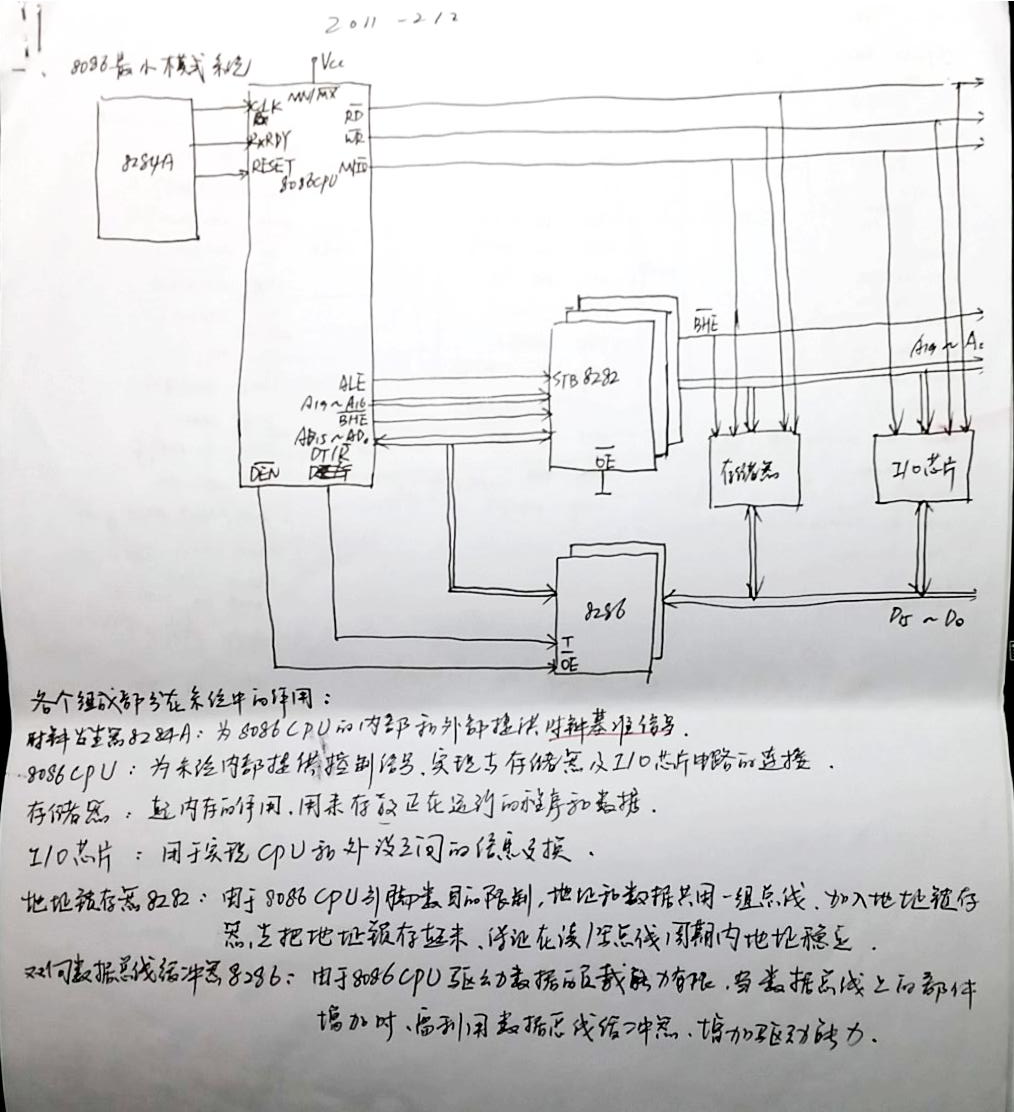 2011-2/2
一、8086最小模式系统
Vcc
CLK MN/M̅X̅
R̅D̅
RxRDY
W̅R̅
RESET
M/I̅O̅
8284A
8086CPU
B̅H̅E̅
A19~A0
ALE
STB 8282
A19~A16
B̅H̅E̅
AD15~AD0
DT/R̅
D̅E̅N̅
O̅E̅
存储器
I/O芯片
8286
T
O̅E̅
D15~D0
各个组成部分在系统中的作用：
时钟发生器8284A：为8086CPU的内部和外部提供时钟基准信号.
8086CPU：为系统内部提供控制信号、实现与存储器及I/O芯片电路的连接.
存储器：起内存的作用、用来存放正在运行的程序和数据.
I/O芯片：用于实现CPU和外设之间的信息交换.
地址锁存器8282：由于8086CPU引脚数目的限制,地址和数据共用一组总线、加入地址锁存
器,先把地址锁存起来、保证在读/写总线周期内地址稳定.
双向数据总线缓冲器8286：由于8086CPU驱动数据的负载能力有限、当数据总线上的部件
增加时、需利用数据总线缓冲器、增加驱动能力.